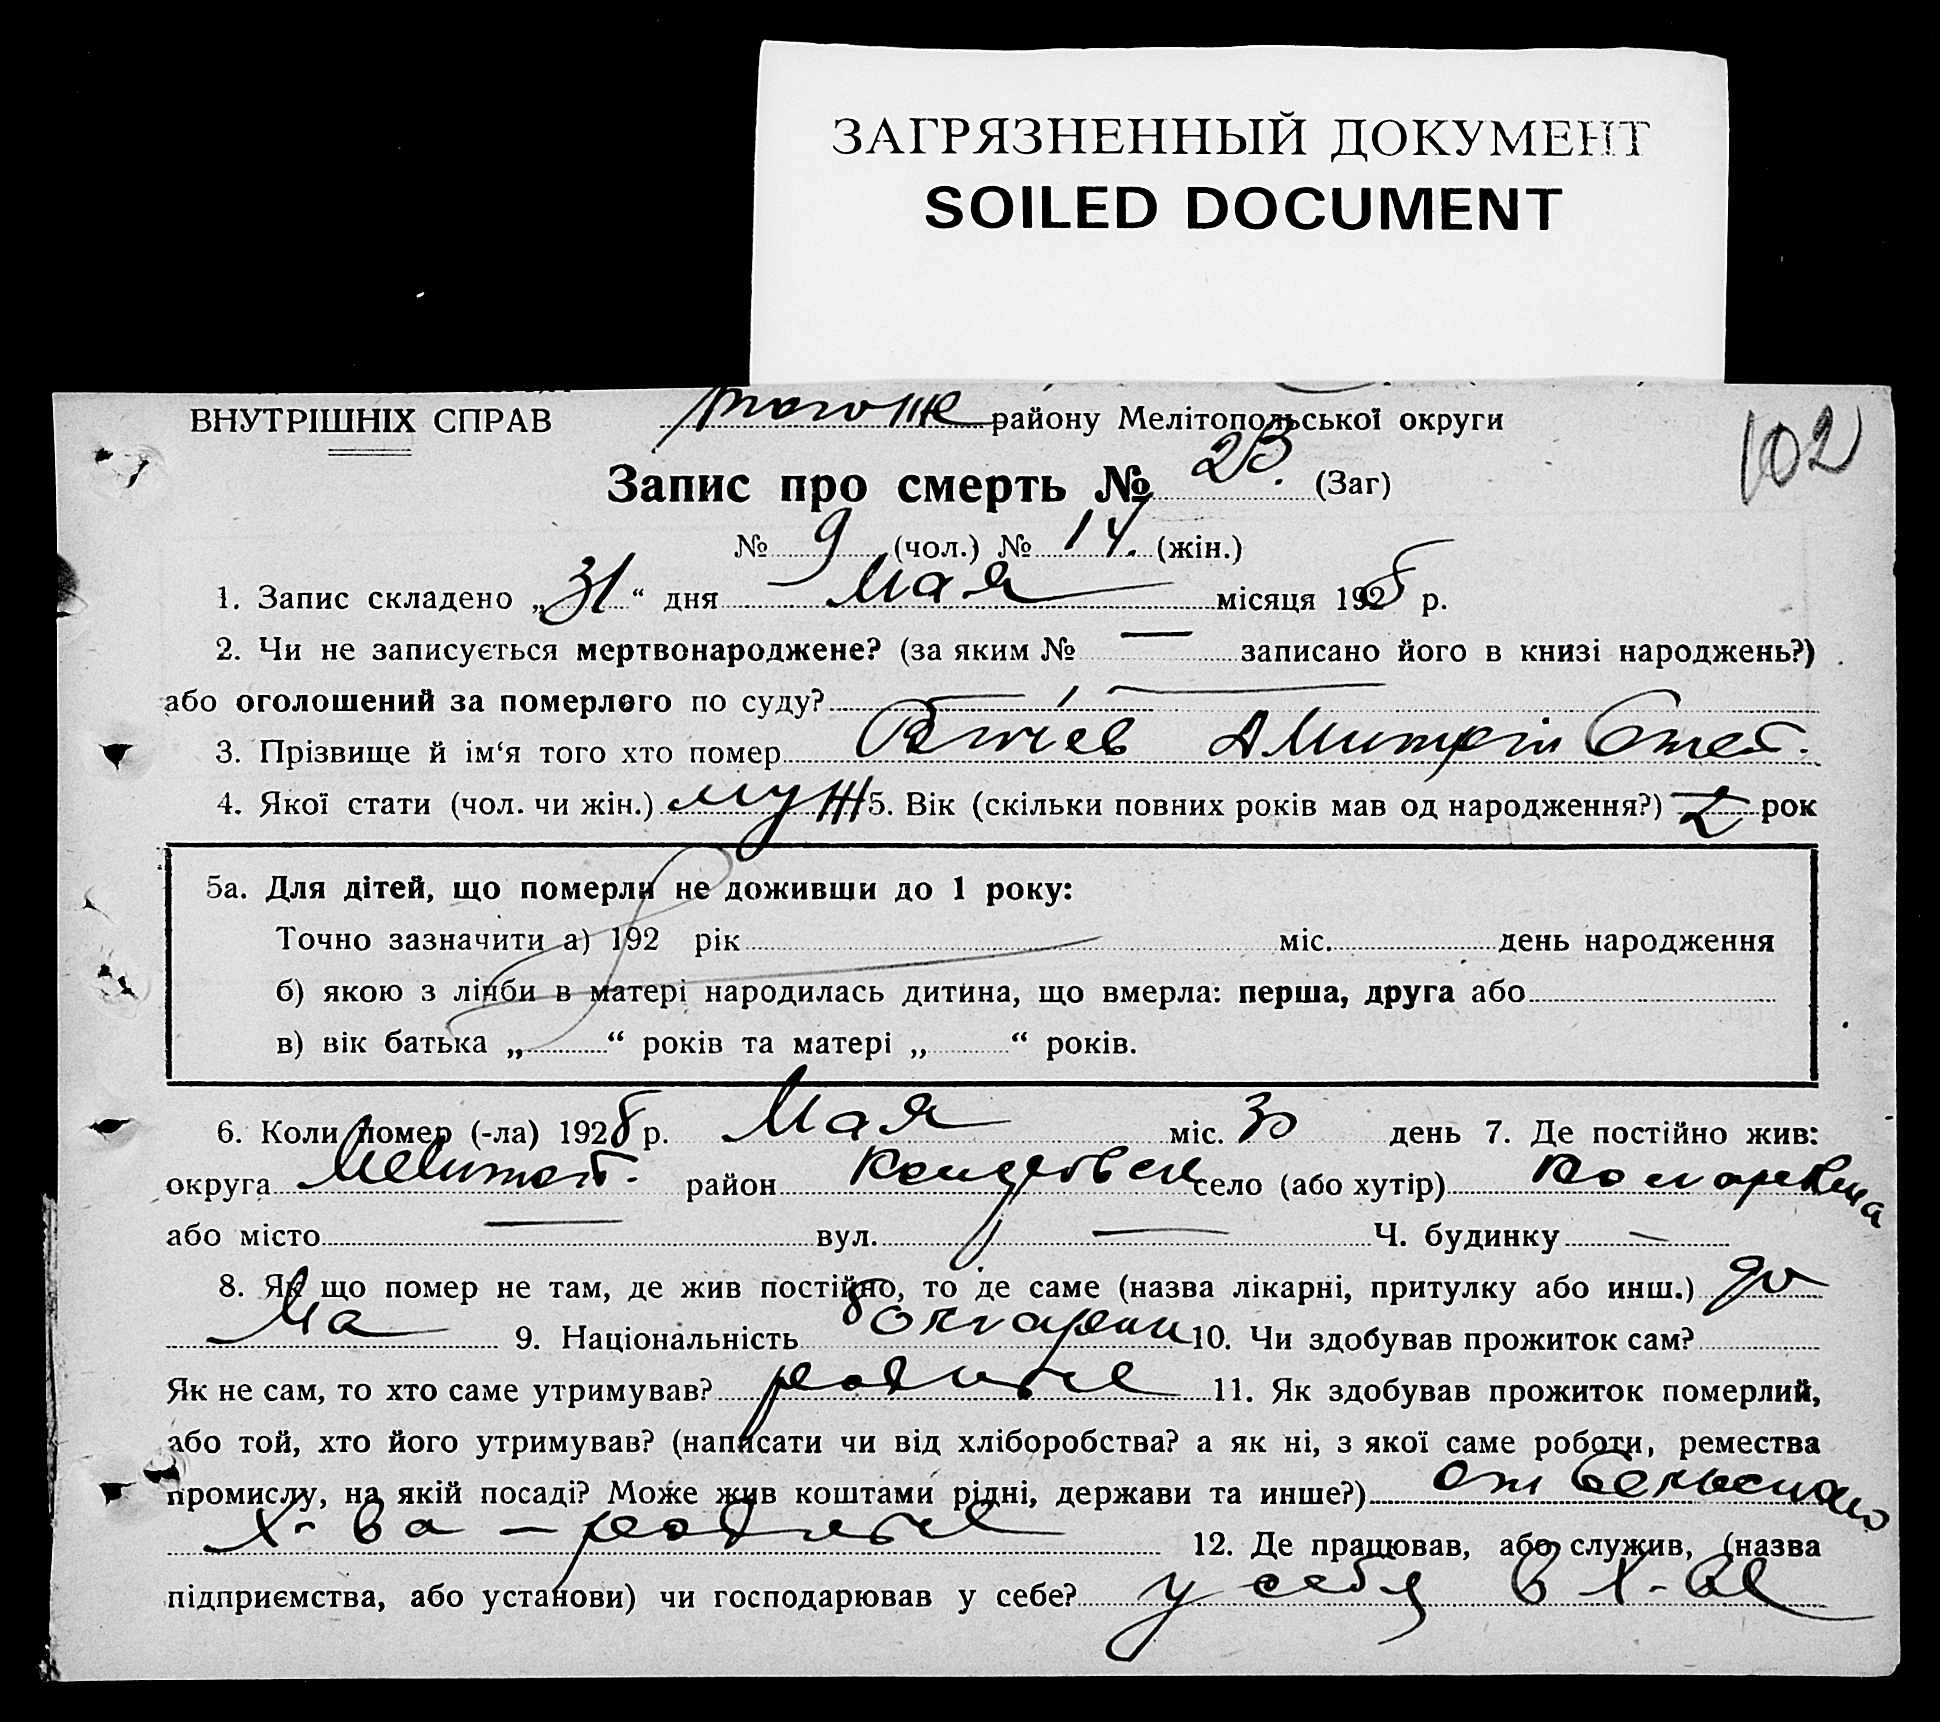 ЗАГРЯЗНЕННЫЙ ДОКУМЕНТ
SOILED DOCUMENT
ВНУТРІШНІХ СПРАВ району Мелітопольської округи
102
Запис про смерть № 23. (Заг)
№ 9 (чол.) № 14. (жін.)
1. Запис складено „31“ дня Мая місяця 1928 р.
2. Чи не записується мертвонароджене? (за яким № — записано його в книзі народжень?)
або оголошений за померлого по суду? —
3. Прізвище й ім‘я того хто помер Дмитрій Степ.
4. Якої стати (чол. чи жін.) муж 5. Вік (скільки повних років мав од народження?) 2 рок
5а. Для дітей, що померли не доживши до 1 року:
Точно зазначити а) 192 рік міс. день народження
б) якою з лінби в матері народилась дитина, що вмерла: перша, друга або
в) вік батька „ “ років та матері „ “ років.
6. Коли помер (-ла) 1928 р. Мая міс. 30 день 7. Де постійно жив:
округа Мелитоп. район село (або хутір)
або місто — вул. — Ч. будинку —
8. Як що помер не там, де жив постійно, то де саме (назва лікарні, притулку або инш.) до
ма 9. Національність болгарин 10. Чи здобував прожиток сам?
Як не сам, то хто саме утримував? 11. Як здобував прожиток померлий,
або той, хто його утримував? (написати чи від хліборобства? а як ні, з якої саме роботи, ремества
промислу, на якій посаді? Може жив коштами рідні, держави та инше?) от сельского
х-ва — 12. Де працював, або служив, (назва
підприємства, або установи) чи господарював у себе? у себя в х-ве